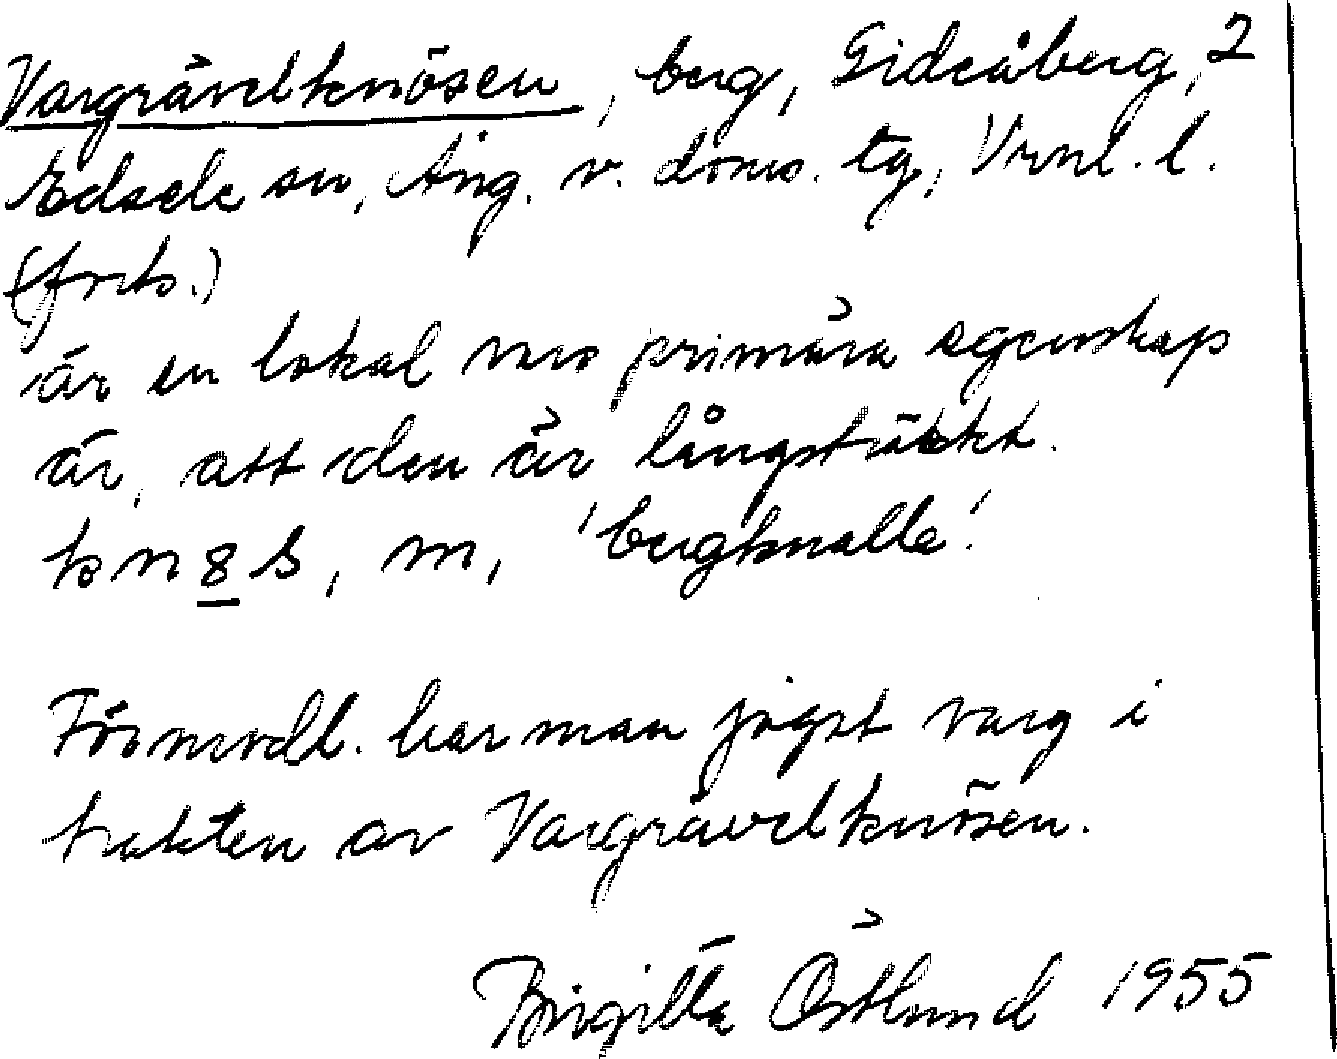 Vargrävelknösen, berg, Gideåberg, 2
Edsele sn, Ång. v. doms. tg, Vrnl. l.
(forts.)
är en lokal vars primära egenskap
är, att den är långsträckt.
kn8s, m, 'bergknalle'.
Förmodl. har man jagat varg i
trakten av Vargrävelknösen.
Birgitta Östlund 1955